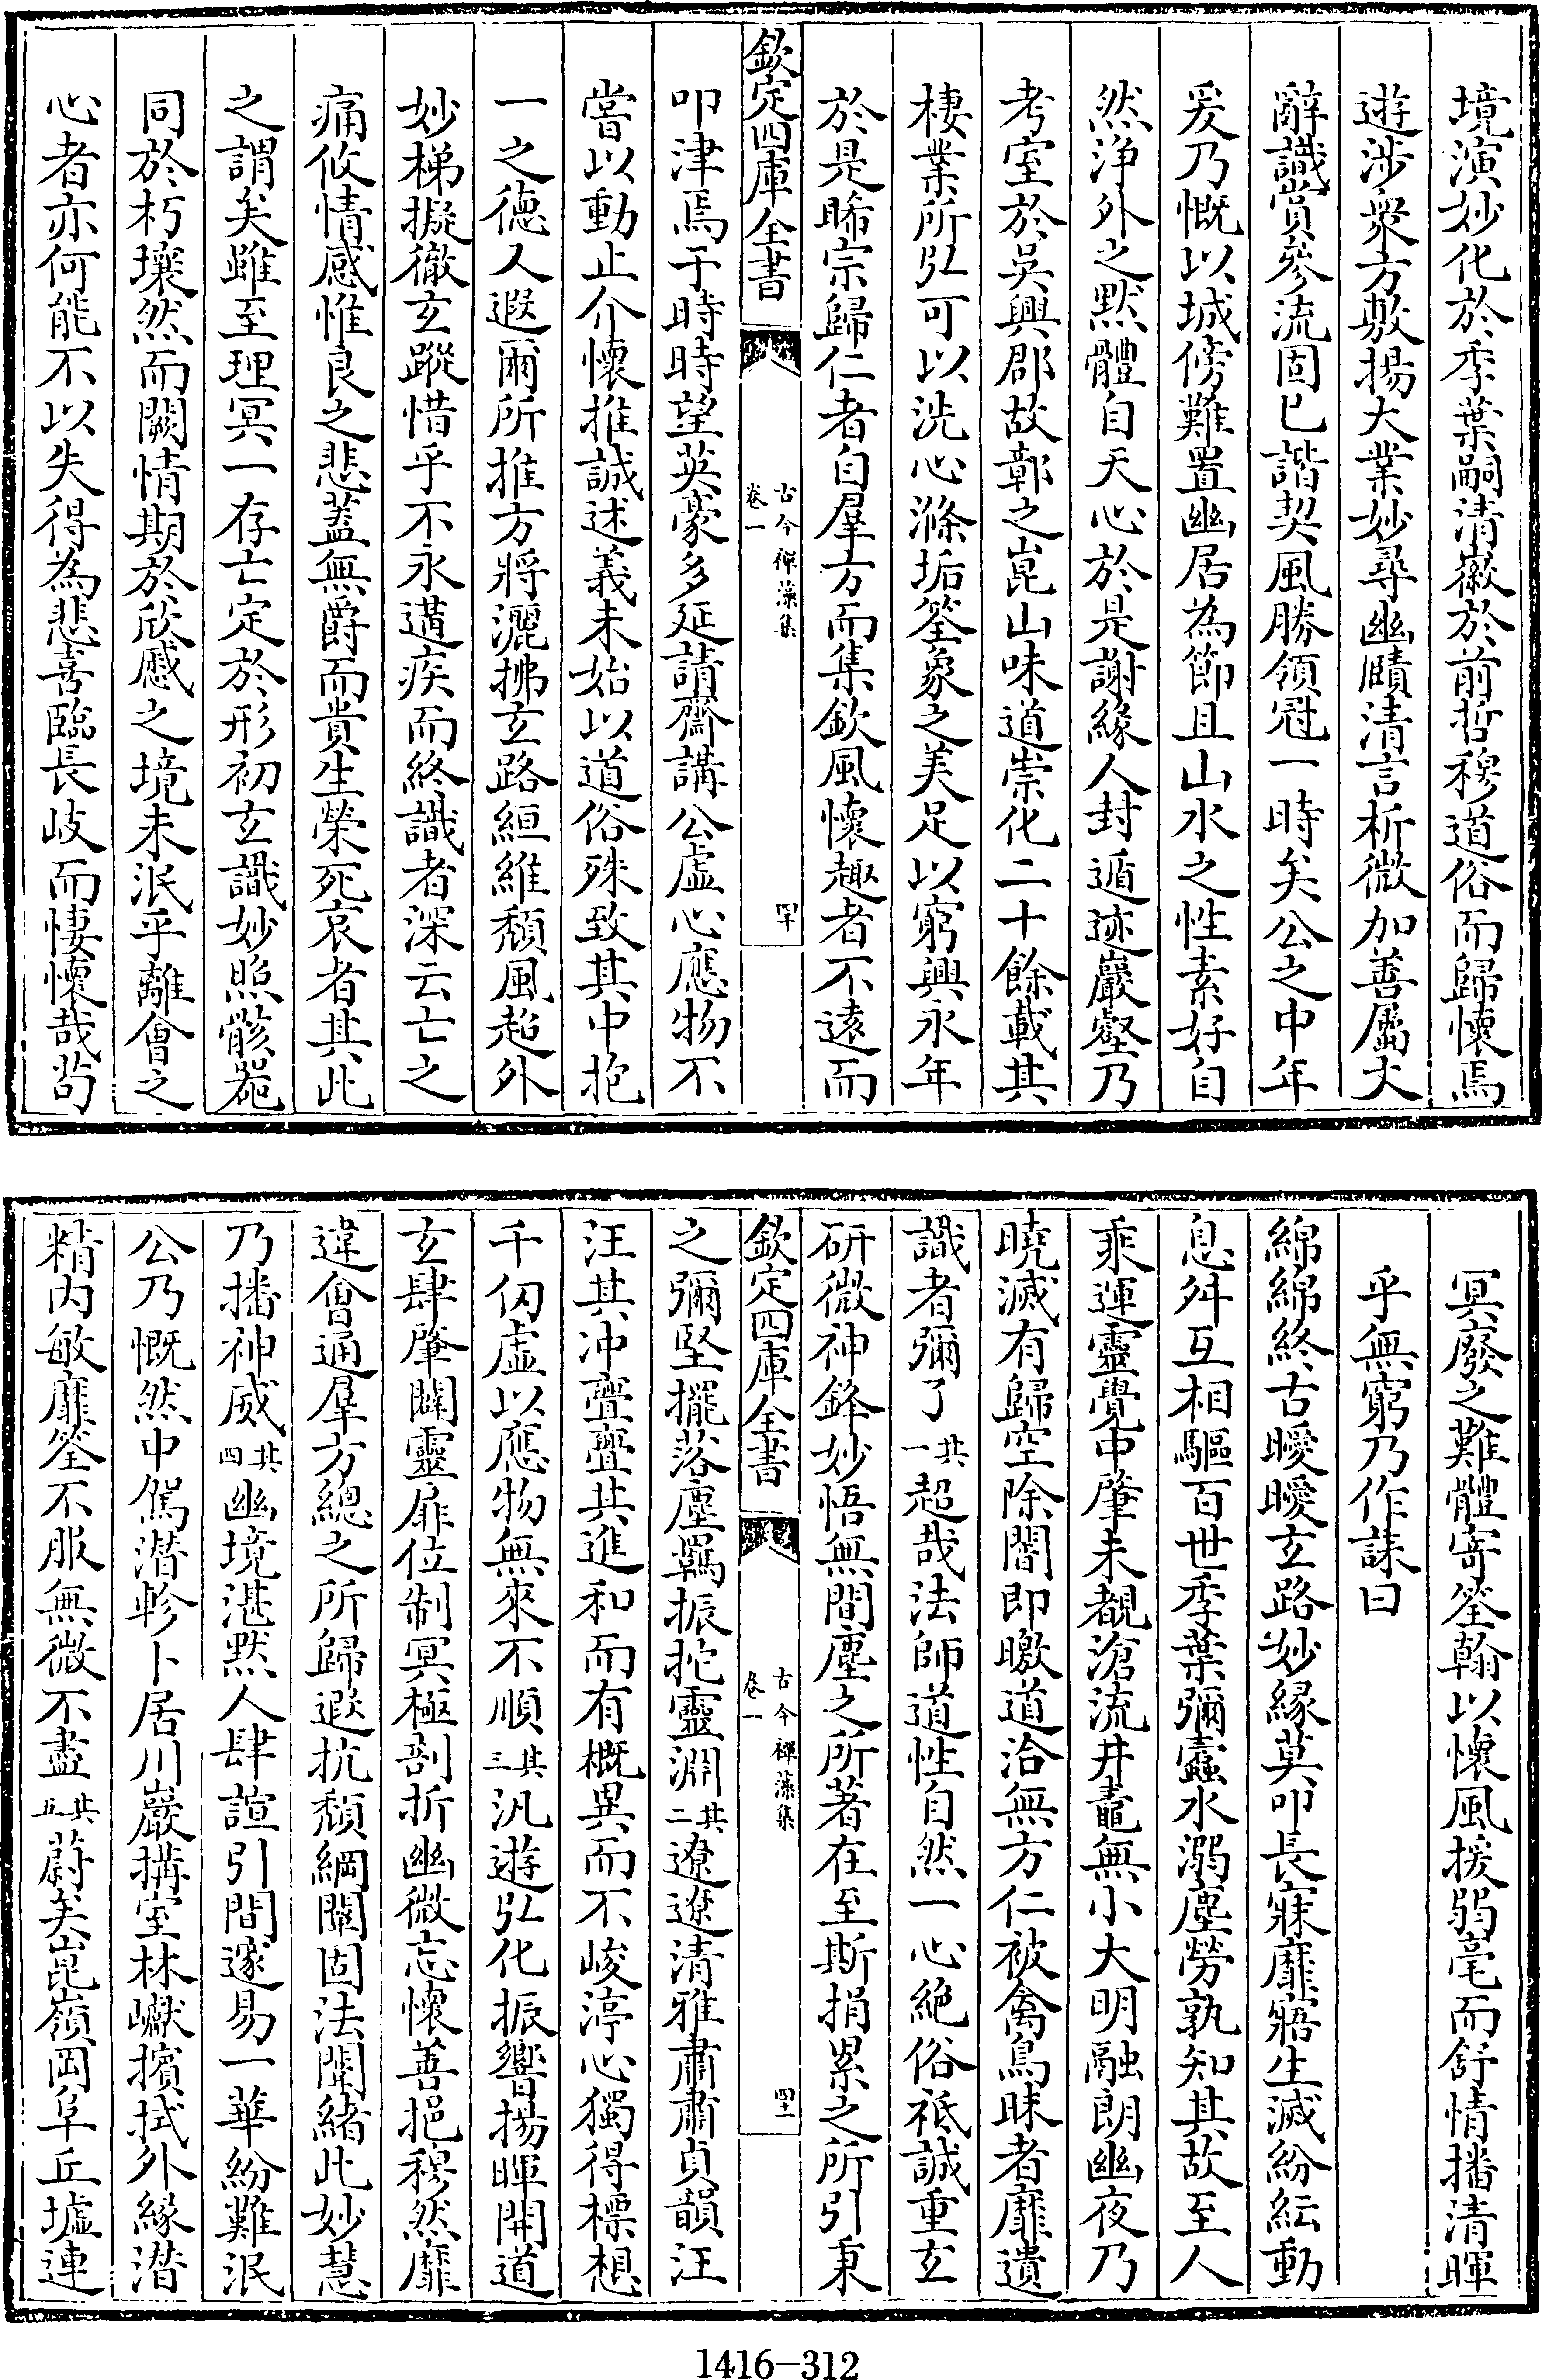 境演妙化於季葉嗣清徽於前哲穆道俗而歸懷焉
遊涉衆方敷揚大業妙尋幽賾清言析微加善屬文
辭識賞參流固已諧契風勝領冠一時矣公之中年
爰乃慨以城傍難置幽居為節且山水之性素好自
然浄外之黙體自天心於是謝緣人封遁迹巖壑乃
考室於吳興郡故鄣之崑山味道崇化二十餘載其
棲業所弘可以洗心滌垢筌象之美足以窮興永年
於是晞宗歸仁者自羣方而集欽風懷趣者不遠而
欽定四庫全書
古今禪藻集
卷一
四十
叩津焉于時時望英豪多延請齋講公虛心應物不
嘗以動止介懷推誠述義未始以道俗殊致其中抱
一之德人遐爾所推方將灑拂玄路絙維頹風超外
妙梯擬徹玄蹤惜乎不永遘疾而終識者深云亡之
痛攸情感惟良之悲蓋無爵而貴生榮死哀者其此
之謂矣雖至理冥一存亡定於形初玄識妙照骸器
同於朽壤然而闕情期於欣慼之境未泯乎離會之
心者亦何能不以失得為悲喜臨長岐而悽懷哉茍
冥廢之難體寄筌翰以懷風援弱毫而舒情播清暉
乎無窮乃作誄曰
綿綿終古曖曖玄路妙緣莫叩長寐靡寤生滅紛紜動
息舛互相驅百世季葉彌蠧水溺塵勞孰知其故至人
乘運靈覺中肇未覩滄流井鼃無小大明融朗幽夜乃
曉滅有歸空除闇即曒道洽無方仁被禽鳥昧者靡遺
識者彌了其一超哉法師道性自然一心絶俗祗誠重玄
研微神鋒妙悟無間塵之所著在至斯捐累之所引秉
欽定四庫全書
古今禪藻集
卷一
四十一
之彌堅擺落塵羈振拕靈淵其二遼遼清雅肅肅貞韻汪
汪其冲亹亹其進和而有概異而不峻渟心獨得標想
千仞虛以應物無來不順其三汎遊弘化振響揚暉開道
玄肆肇闢靈扉位制冥極剖折幽微忘懷善挹穆然靡
違會通羣方總之所歸遐抗頹綱闡固法闈緒此妙慧
乃播神威其四幽境湛黙人肆諠引間邃易一華紛難泯
公乃慨然中駕潛軫卜居川巖搆室林巘擯拭外緣潛
精内敏靡筌不服無微不盡其五蔚矣崑嶺岡阜丘墟連
1416-312